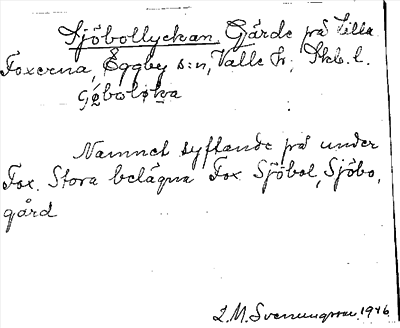 Sjöbollyckan Gärde på Lilla
Foxerna, Eggby s:n, Valle hr, Skb. l.
Namnet syftande på under
Fox. Stora belägna Fox Sjöbol, Sjöbo,
gård
L.M. Svenungsson 1946